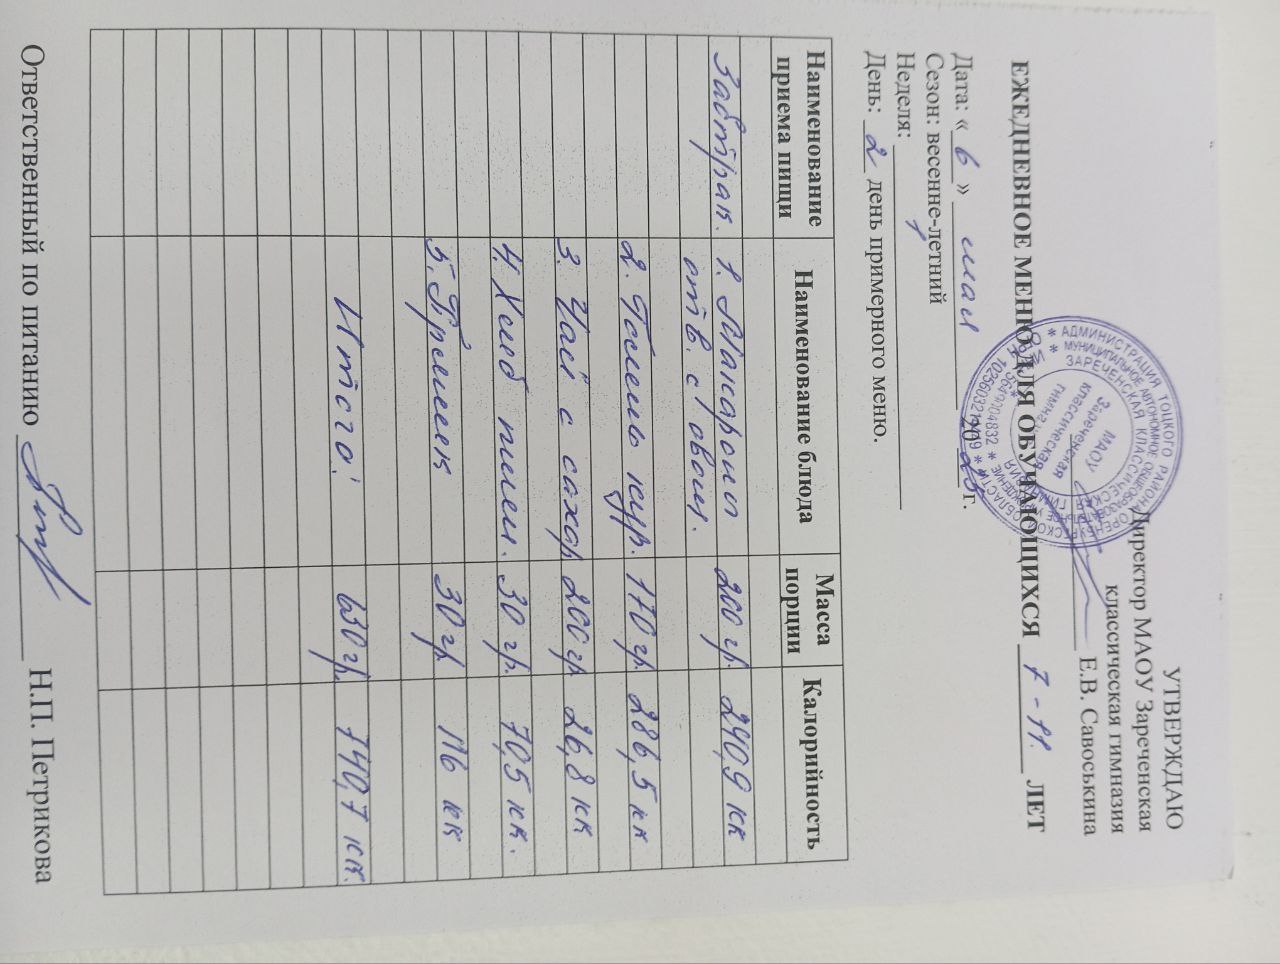 УТВЕРЖДАЮ
Директор МАОУ Зареченская
классическая гимназия
Е.В. Савоськина
МАОУ
Зареченская
классическая
гимназия
ЕЖЕДНЕВНОЕ МЕНЮ ДЛЯ ОБУЧАЮЩИХСЯ 7-11 ЛЕТ
Дата: «6» мая 2025 г.
Сезон: весенне-летний
Неделя: 1
День: 2 день примерного меню.
Наименование приема пищи Наименование блюда Масса порции Калорийность
Завтрак. 1. Макароны 200 гр. 240,9 кк
отв. с овощ.
2. Гуляш кур. 170 гр. 286,5 кк
3. Чай с сахар 200 гр 26,8 кк
4. Хлеб пшен. 30 гр. 70,5 кк.
5. Пряник 30 гр 116 кк
Итого: 630 гр. 740,7 кк.
Ответственный по питанию Н.П. Петрикова